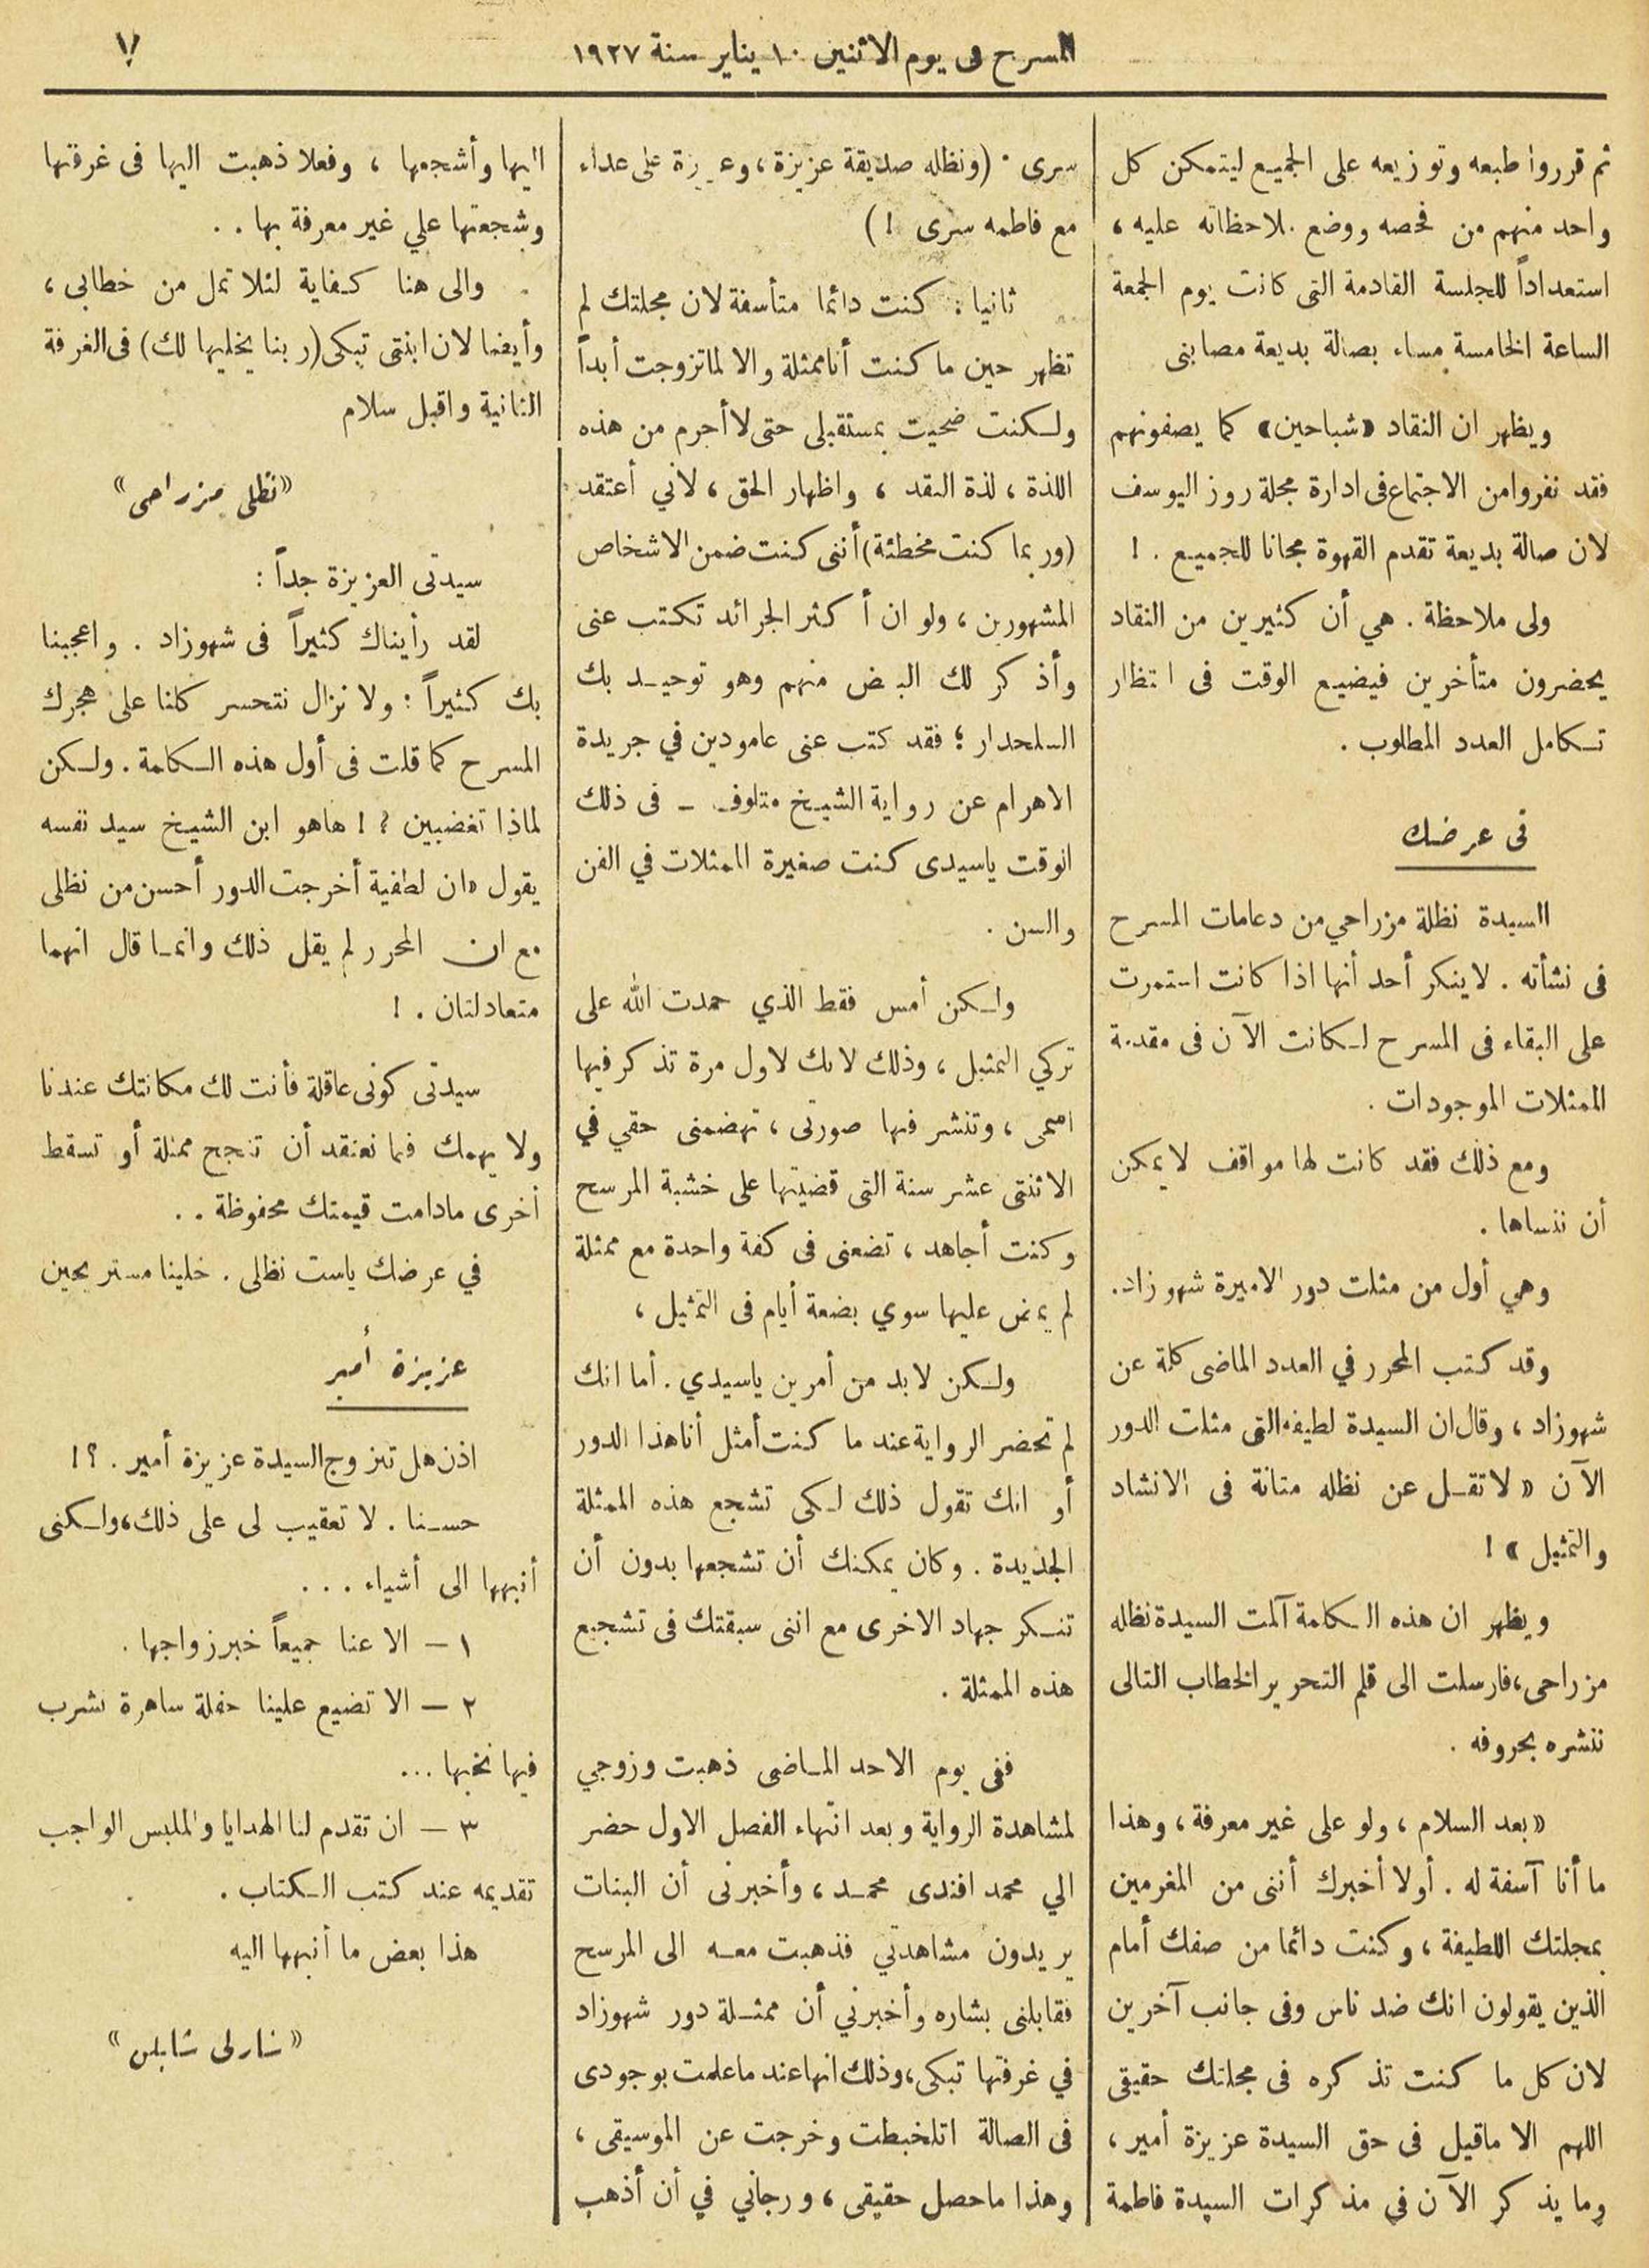 المسرح فى يوم الاثنين ١٠ يناير سنة ١٩٢٧
ثم قرروا طبعه وتوزيعه على الجميع ليتمكن كل
واحد منهم من فحصه ووضع ملاحظاته عليه ،
استعداداً للجلسة القادمة التى كانت يوم الجمعة
الساعة الخامسة مساء بصالة بديعة مصابنى
ويظهر ان النقاد «شباحين» كما يصفونهم
فقد نفروا من الاجتماع فى ادارة مجلة روز اليوسف
لان صالة بديعة تقدم القهوة مجانا للجميع . !
ولى ملاحظة . هي أن كثيرين من النقاد
يحضرون متأخرين فيضيع الوقت فى انتظار
تكامل العدد المطلوب .
فى عرضك
السيدة نظلة مزراحي من دعامات المسرح
فى نشأته . لاينكر أحد أنها اذا كانت استمرت
على البقاء فى المسرح لكانت الآن فى مقدمة
الممثلات الموجودات .
ومع ذلك فقد كانت لها مواقف لا يمكن
أن ننساها .
وهي أول من مثلت دور الاميرة شهوزاد .
وقد كتب المحرر في العدد الماضى كلمة عن
شهوزاد ، وقال ان السيدة لطيفه التى مثلت الدور
الآن « لا تقل عن نظله متانة فى الانشاد
والتمثيل » !
ويظهر ان هذه الكلمة آلمت السيدة نظله
مزراحى ، فارسلت الى قلم التحرير الخطاب التالى
ننشره بحروفه .
« بعد السلام ، ولو على غير معرفة ، وهذا
ما أنا آسفة له . أولا أخبرك أننى من المغرمين
بمجلتك اللطيفة ، وكنت دائما من صفك أمام
الذين يقولون انك ضد ناس وفى جانب آخرين
لان كل ما كنت تذكره فى مجلتك حقيقى
اللهم الا ماقيل فى حق السيدة عزيزة أمير ،
وما يذكر الآن في مذكرات السيدة فاطمة
سرى . (ونظله صديقة عزيزة ، وعزيزة على عداء
مع فاطمه سرى ! )
ثانيا : كنت دائما متأسفة لان مجلتك لم
تظهر حين ما كنت أنا ممثلة والا لما تزوجت أبداً
ولكنت ضحيت بمستقبلى حتى لا أحرم من هذه
اللذة ، لذة النقد ، واظهار الحق ، لاني أعتقد
(وربما كنت مخطئة) أننى كنت ضمن الاشخاص
المشهورين ، ولو ان أكثر الجرائد تكتب عنى
وأذكر لك البعض منهم وهو توحيد بك
السلحدار ؛ فقد كتب عنى عامودين في جريدة
الاهرام عن رواية الشيخ متلوف – فى ذلك
الوقت ياسيدى كنت صغيرة الممثلات في الفن
والسن .
ولكن أمس فقط الذي حمدت الله على
تركي التمثيل ، وذلك لانك لاول مرة تذكر فيها
اسمى ، وتنشر فيها صورتى ، تهضمنى حقي في
الاثنتى عشر سنة التى قضيتها على خشبة المرسح
وكنت أجاهد ، تضعنى فى كفة واحدة مع ممثلة
لم يمض عليها سوي بضعة أيام فى التمثيل ،
ولكن لابد من أمرين ياسيدي . أما انك
لم تحضر الرواية عند ما كنت أمثل أنا هذا الدور
أو انك تقول ذلك لكى تشجع هذه الممثلة
الجديدة . وكان يمكنك أن تشجعها بدون أن
تنكر جهاد الاخرى مع اننى سبقتك فى تشجيع
هذه الممثلة .
ففى يوم الاحد الماضى ذهبت وزوجي
لمشاهدة الرواية وبعد انتهاء الفصل الاول حضر
الي محمد افندى محمد ، وأخبرنى أن البنات
يريدون مشاهدتي فذهبت معه الى المرسح
فقابلنى بشاره وأخبرني أن ممثلة دور شهوزاد
في غرفتها تبكى ، وذلك انها عند ما علمت بوجودى
فى الصالة اتلخبطت وخرجت عن الموسيقى ،
وهذا ماحصل حقيقى ، ورجاني في أن أذهب
اليها وأشجعها ، وفعلا ذهبت اليها فى غرفتها
وشجعتها علي غير معرفة بها . .
والى هنا كفاية لئلا تمل من خطابى ،
وأيضا لان ابنتى تبكى (ربنا يخليها لك) فى الغرفة
الثانية واقبل سلام
«نظلى مزراحى»
سيدتى العزيزة جداً :
لقد رأيناك كثيراً فى شهوزاد . واعجبنا
بك كثيراً : ولا نزال نتحسر كلنا على هجرك
المسرح كما قلت فى أول هذه الكلمة . ولكن
لماذا تغضبين ؟ ! هاهو ابن الشيخ سيد نفسه
يقول «ان لطفية أخرجت الدور أحسن من نظلى
مع ان المحرر لم يقل ذلك وانما قال انهما
متعادلتان . !
سيدتى كونى عاقلة فأنت لك مكانتك عندنا
ولا يهمك فما نعتقد أن تنجح ممثلة أو تسقط
أخرى مادامت قيمتك محفوظة . .
في عرضك ياست نظلى . خلينا مستريحين
عزيزة أمير
اذن هل تتزوج السيدة عزيزة أمير . ؟ !
حسنا . لا تعقيب لى على ذلك ، ولكنى
أنبهها الى أشياء . . .
١ – الا عنا جميعاً خبر زواجها .
٢ – الا تضيع علينا حفلة ساهرة نشرب
فيها نخبها ...
٣ – ان تقدم لنا الهدايا والملبس الواجب
تقديمه عند كتب الكتاب .
هذا بعض ما أنبهها اليه
«شارلى شابلن»